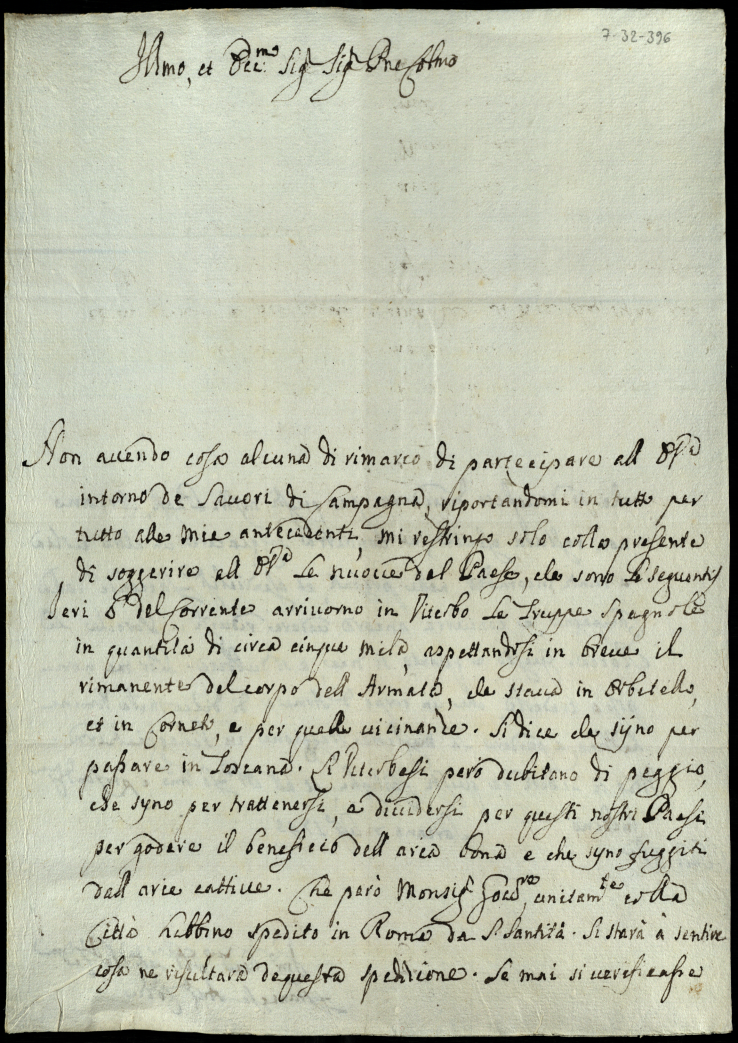 7-32-396
Illmo, et Ecc.mo Sig.r Sig.r Pne Colmo
Non auendo cosa alcuna di rimarco di partecipare all
intorno de Lauori di Campagna, riportandomi in tutto per
tutto alle mie antecedenti, mi restringo solo colla presente
di soggerire all Le nuoue del Paese, che sono Le seguenti
Ieri del Corrente arriuorno in Viterbo Le Truppe Spagnole
in quantità di circa cinque mila, aspettandosi in breue il
rimanente del corpo dell Armata, che staua in Orbitello,
et in Corneto, e per quelle uicinanze. Si dice che sijno per
passare in Toscana. Li Viterbesi però dubitano di peggio,
che sijno per trattenersi, e diuidersi per questi nostri Paesi
per godere il beneficio dell aria bona e che sijno fuggiti
dall arie cattiue. Che però Monsig.r Gou.re, unitam.te colla
Città habbino spedito in Roma da S. Santità. Si starà à sentire
cosa ne risultarà de questa spedizione. Se mai si uerificasse